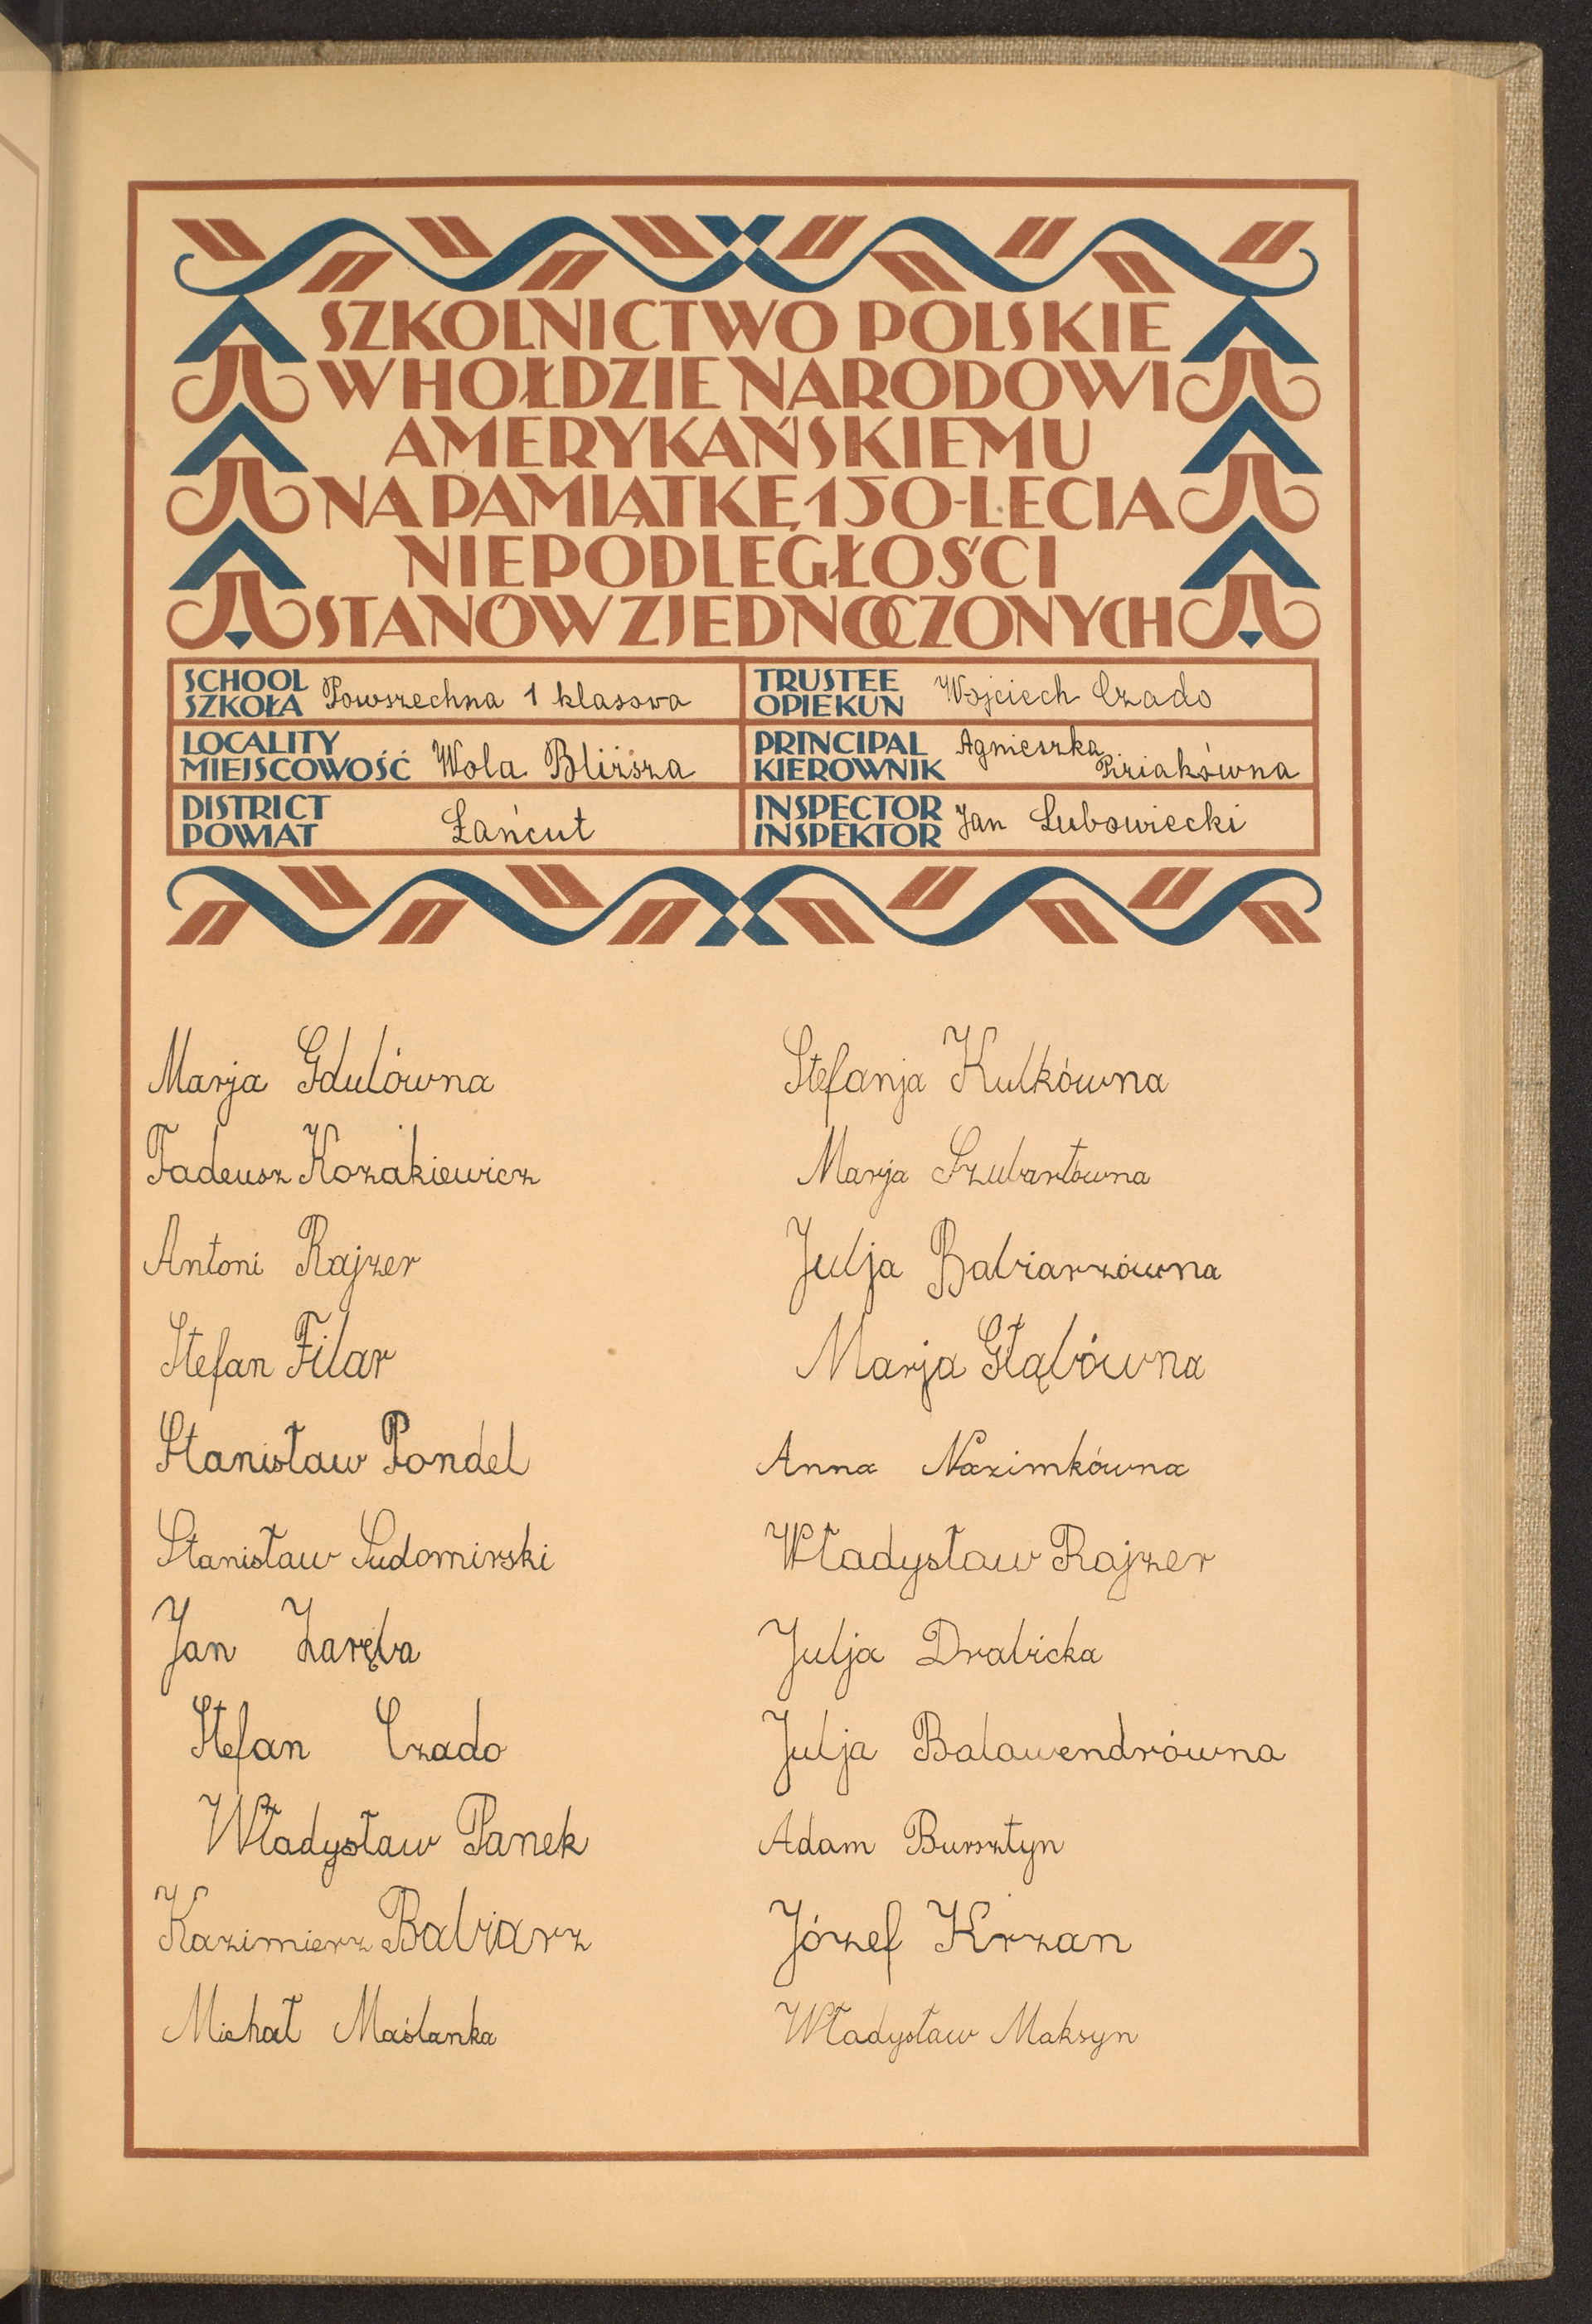 SZKOLNICTWO POLSKIE
W HOŁDZIE NARODOWI
AMERYKAŃSKIEMU
NA PAMIĄTKĘ 150-LECIA
NIEPODLEGŁOŚCI
STANÓW ZJEDNOCZONYCH
SCHOOL
SZKOŁA Powszechna 1 klasowa
TRUSTEE
OPIEKUN Wojciech Czado
LOCALITY
MIEJSCOWOŚĆ Wola Bliższa
PRINCIPAL Agnieszka
KIEROWNIK Pziakówna
DISTRICT
POWIAT Łańcut
INSPECTOR
INSPEKTOR Jan Lubowiecki
Marja Gdulówna
Tadeusz Kozakiewicz
Antoni Rajzer
Stefan Filar
Stanisław Pondel
Stanisław Sudomirski
Jan Zaręba
Stefan Czado
Władysław Panek
Kazimierz Babiarz
Michał Maślanka
Stefanja Kulkówna
Marja Szubartówna
Julja Babiarzówna
Marja Głąbówna
Anna Nazimkówna
Władysław Rajzer
Julja Drabicka
Julja Balawendrówna
Adam Bursztyn
Józef Krzan
Władysław Maksyn